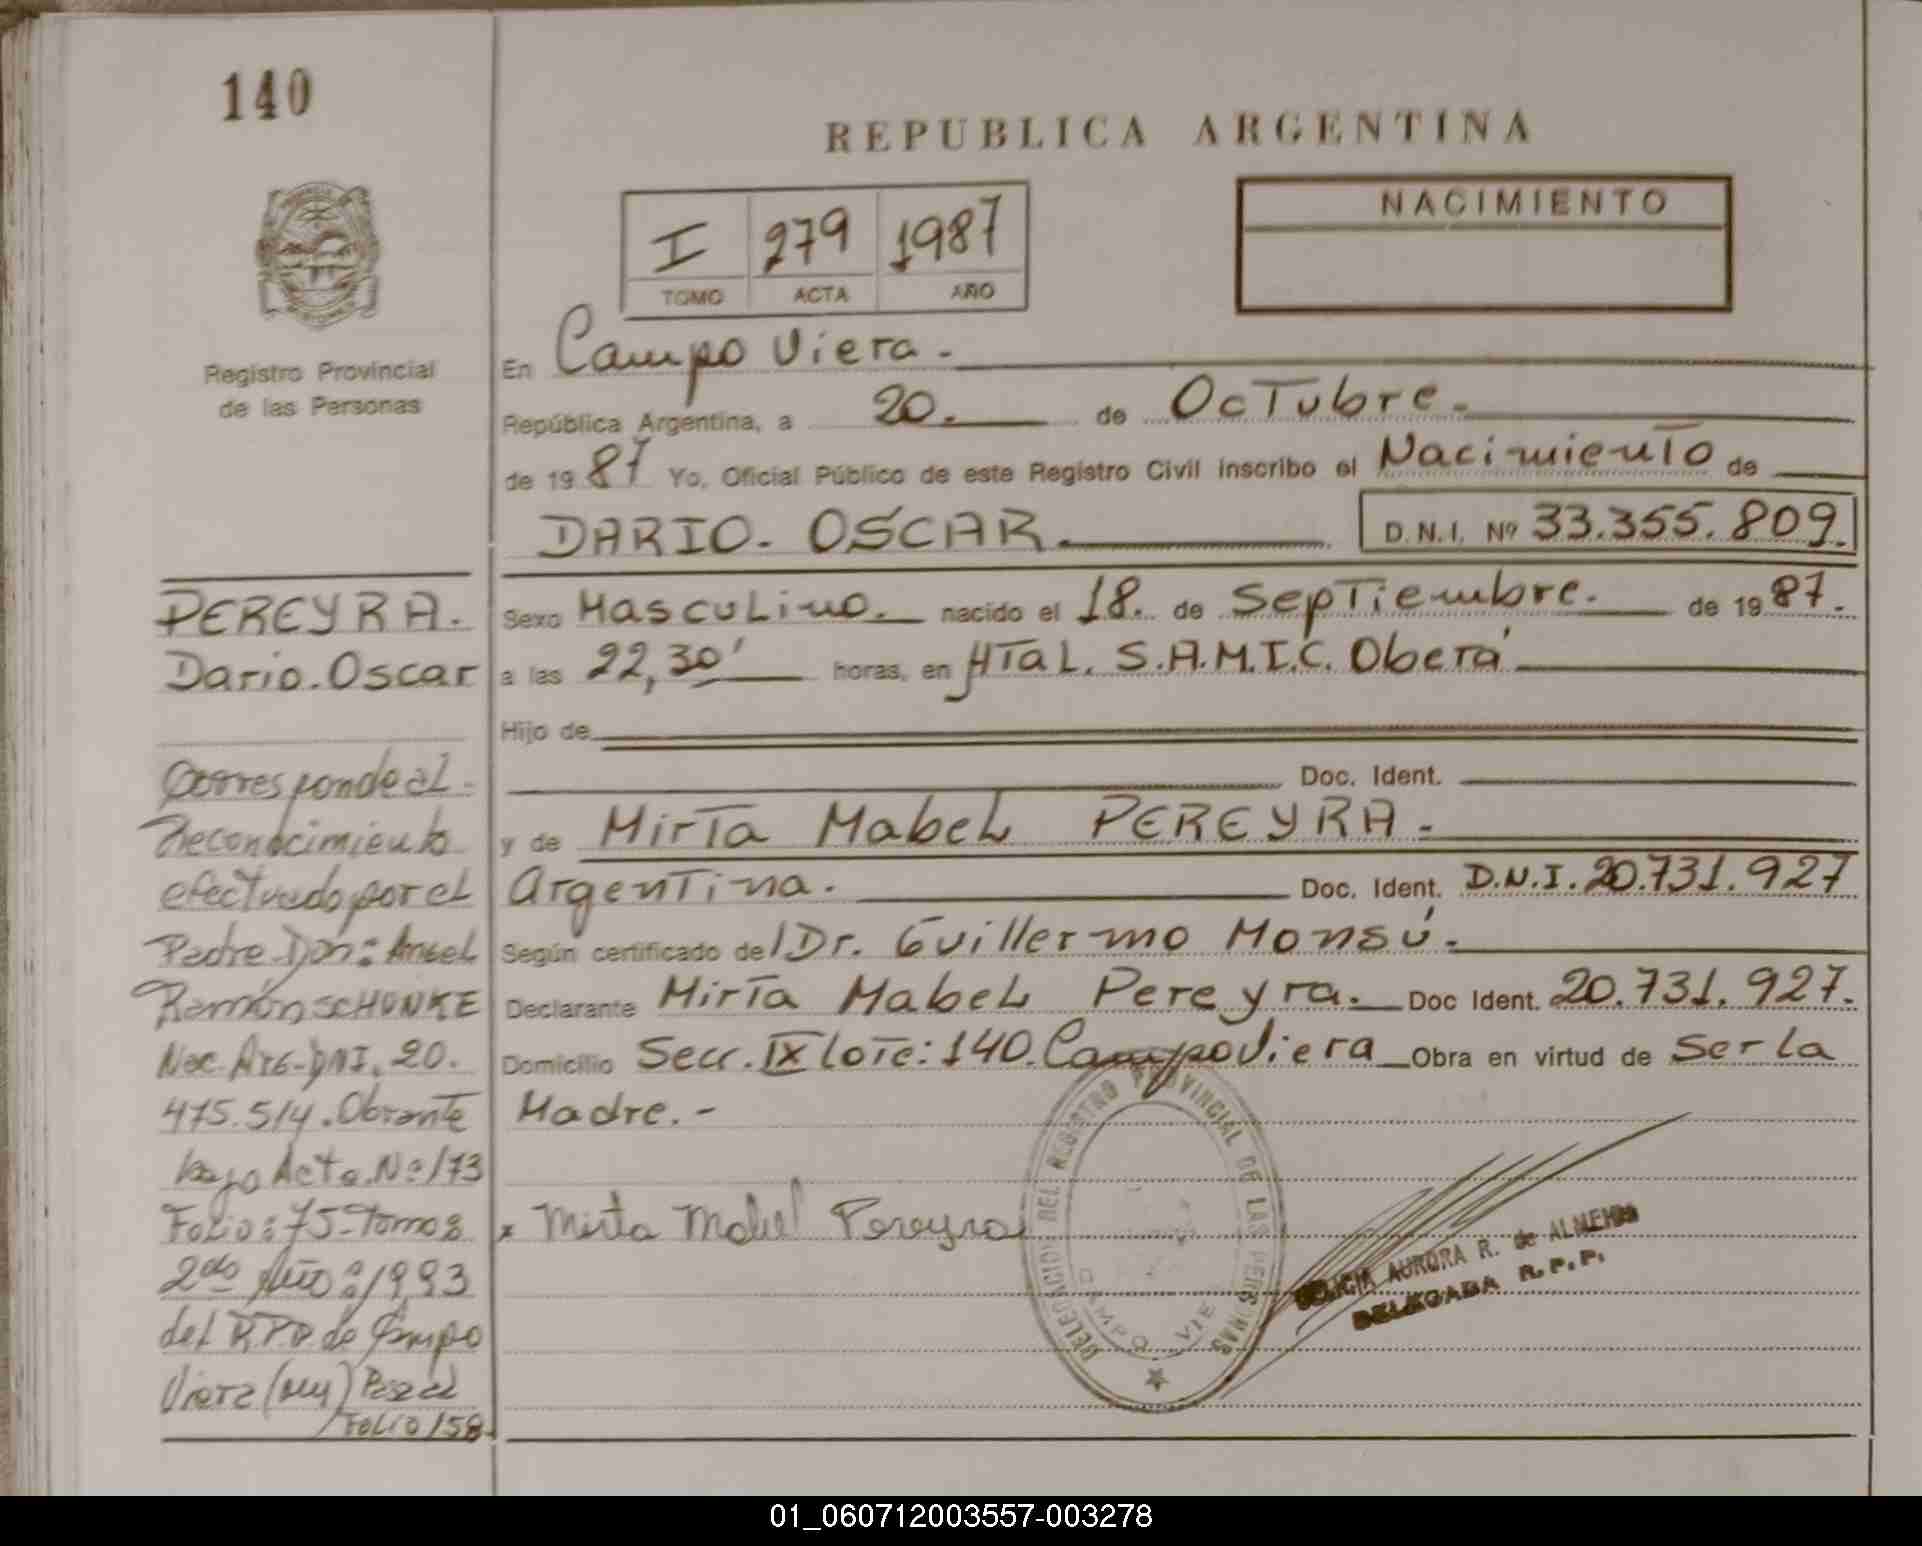 140
REPUBLICA ARGENTINA
NACIMIENTO
I 279 1987
TOMO ACTA AÑO
Registro Provincial
de las Personas
En Campo Viera.
República Argentina, a 20. de Octubre.
de 19 87 Yo, Oficial Público de este Registro Civil inscribo el Nacimiento de
DARIO. OSCAR. D.N.I. Nº 33.355.809.
Sexo Masculino. nacido el 18. de Septiembre. de 19 87.
a las 22,30' horas, en HTaL. S.A.M.I.C. Oberá
Hijo de
Doc. Ident.
y de Mirta Mabel PEREYRA.
Argentina. Doc. Ident. D.N.I. 20.731.927
Según certificado del Dr. Guillermo Monsú.
Declarante Mirta Mabel Pereyra. Doc Ident. 20.731.927.
Domicilio Secc. IX Lote: 140. Campo Viera Obra en virtud de Ser la
Madre.-
x Mirta Mabel Pereyra
DELEGACION DEL REGISTRO PROVINCIAL DE LAS PERSONAS
CAMPO VIE
AURORA R. de ALMEHN
DELEGADA R.P.P.
PEREYRA.
Dario. Oscar
Corresponde al
Reconocimiento
efectuado por el
Padre Don: Angel
Ramón SCHUNKE
Nac. Arg. DNI. 20.
475.514. Obrante
bajo Acta. Nº 173
Folio: 75- Tomo:
2do Año: 1993
del R.P.P. de Campo
Viera (Mnes) Pasa al
Folio 158
01_060712003557-003278